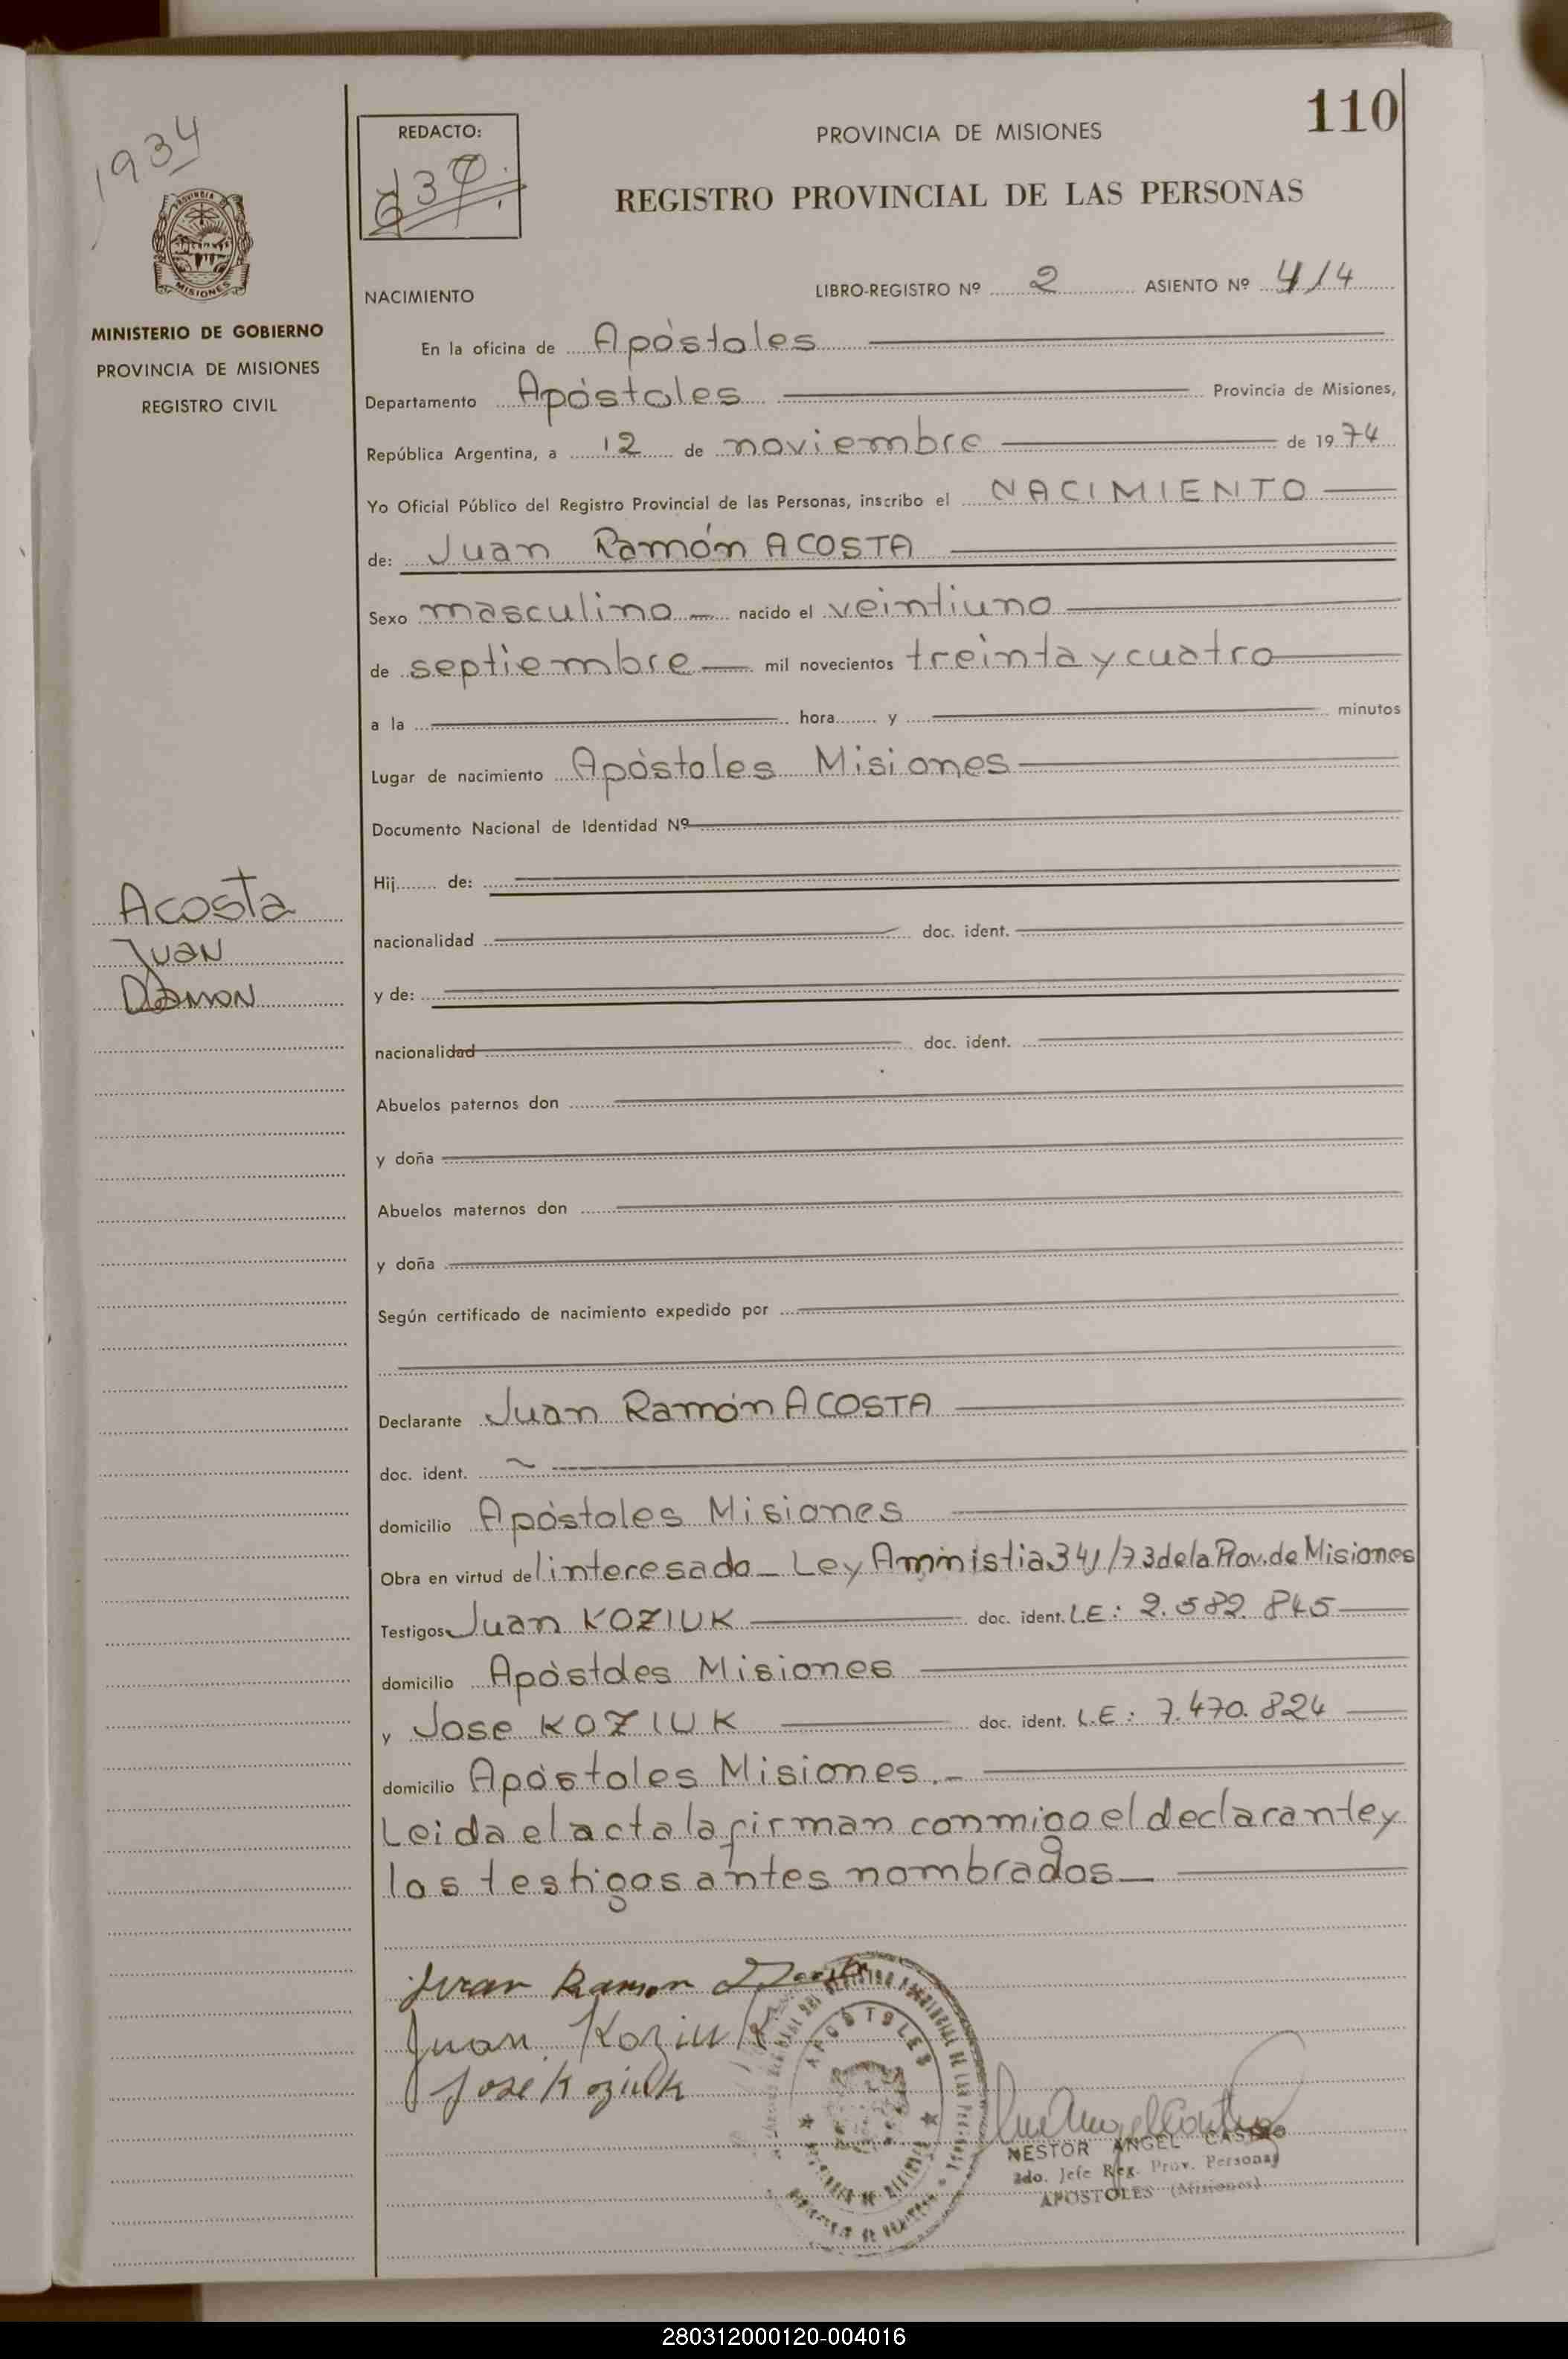 110
1934
REDACTO:
PROVINCIA DE MISIONES
REGISTRO PROVINCIAL DE LAS PERSONAS
PROVINCIA DE
MISIONES
MINISTERIO DE GOBIERNO
PROVINCIA DE MISIONES
REGISTRO CIVIL
NACIMIENTO LIBRO-REGISTRO Nº 2 ASIENTO Nº 414
En la oficina de Apóstoles
Departamento Apóstoles Provincia de Misiones,
República Argentina, a 12 de noviembre de 1974
Yo Oficial Público del Registro Provincial de las Personas, inscribo el NACIMIENTO
de: Juan Ramón ACOSTA
Sexo masculino nacido el veintiuno
de septiembre mil novecientos treinta y cuatro
a la hora y minutos
Lugar de nacimiento Apóstoles Misiones
Documento Nacional de Identidad Nº
Acosta
Juan
Ramon
Hij de:
nacionalidad doc. ident.
y de:
nacionalidad doc. ident.
Abuelos paternos don
y doña
Abuelos maternos don
y doña
Según certificado de nacimiento expedido por
Declarante Juan Ramón ACOSTA
doc. ident.
domicilio Apóstoles Misiones
Obra en virtud del interesado - Ley Amnistia 341/73 de la Prov. de Misiones
Testigos Juan KOZIUK doc. ident. L.E: 2.582.845
domicilio Apóstoles Misiones
y Jose KOZIUK doc. ident. L.E: 7.470.824
domicilio Apóstoles Misiones.-
Leida el acta la firman conmigo el declarante y
los testigos antes nombrados
Juan Ramon Acosta
Juan Koziuk
José Koziuk
APOSTOLES
NESTOR ANGEL CASTRO
2do. Jefe Reg. Prov. Personas
APOSTOLES (Misiones)
280312000120-004016